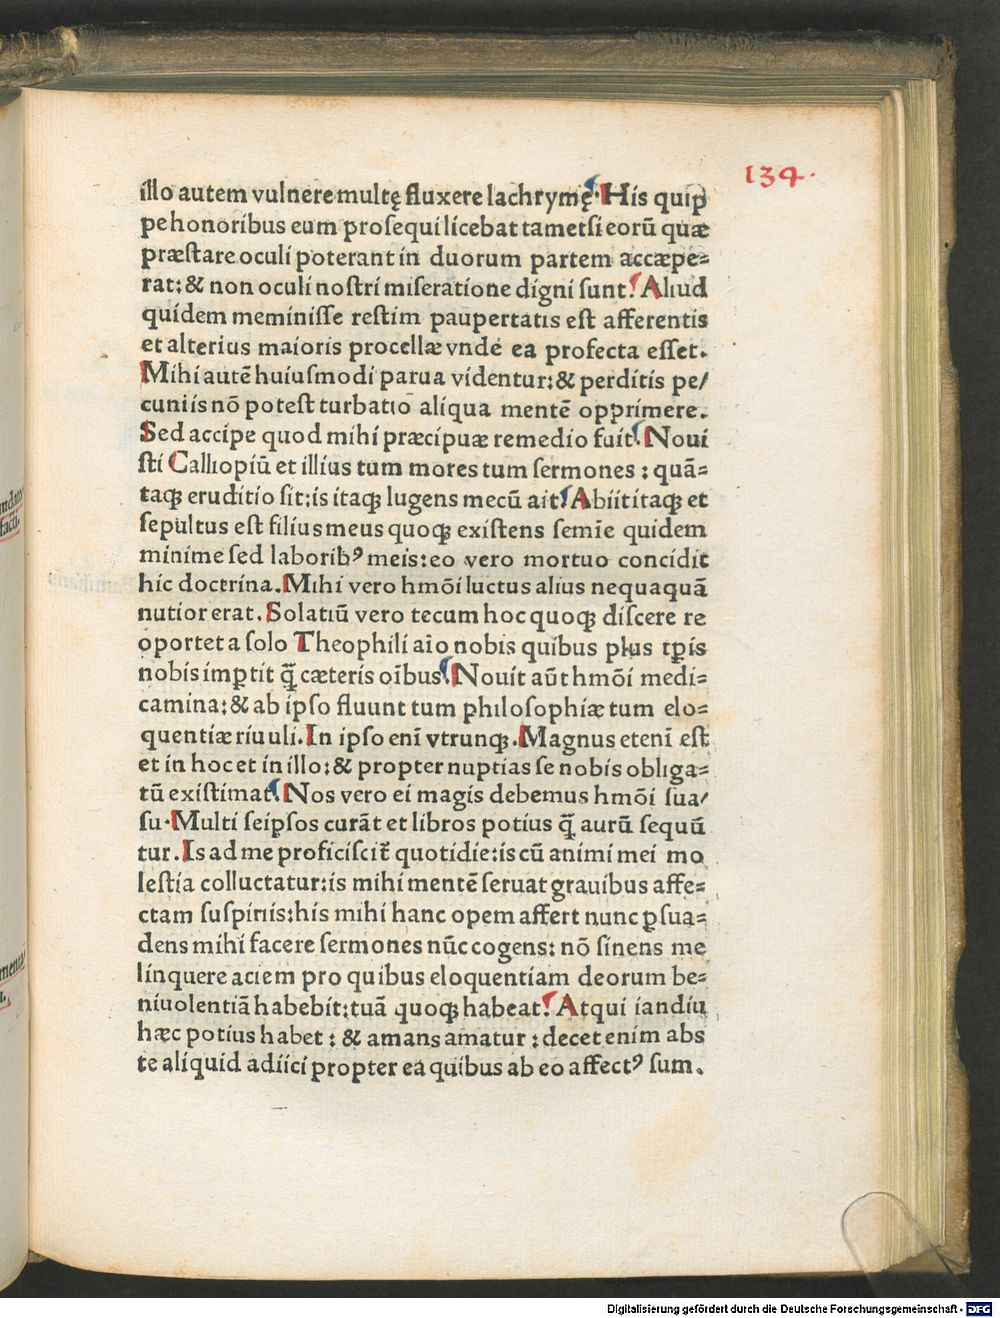 134.
illo autem vulnere multę fluxere lachrymę. His quip
pe honoribus eum prosequi licebat tametsi eorū quæ
præstare oculi poterant in duorum partem accæpe=
rat: & non oculi nostri miseratione digni sunt. Aliud
quidem meminisse restim paupertatis est afferentis
et alterius maioris procellæ vnde ea profecta esset.
Mihi autē huiusmodi parua videntur: & perditis pe/
cuniis nō potest turbatio aliqua mentē opprimere.
Sed accipe quod mihi præcipuæ remedio fuit. Noui
sti Calliopiū et illius tum mores tum sermones: quā=
taqꝫ eruditio sit: is itaqꝫ lugens mecū ait. Abiit itaqꝫ et
sepultus est filius meus quoqꝫ existens semie quidem
minime sed laboribꝰ meis: eo vero mortuo concidit
hic doctrina. Mihi vero hmōi luctus alius nequaquā
nutior erat. Solatiū vero tecum hoc quoqꝫ discere re
oportet a solo Theophili aio nobis quibus plus tp̄is
nobis imꝑtit q̄ cæteris oībus. Nouit aūt hmōi medi=
camina: & ab ipso fluunt tum philosophiæ tum elo=
quentiæ riuuli. In ipso enī vtrunqꝫ. Magnus etenī est
et in hoc et in illo: & propter nuptias se nobis obliga=
tū existimat. Nos vero ei magis debemus hmōi sua/
su. Multi seipsos curāt et libros potius q̄ aurū sequū
tur. Is ad me proficiscit̄ quotidie: is cū animi mei mo
lestia colluctatur: is mihi mentē seruat grauibus affe=
ctam suspiriis: his mihi hanc opem affert nunc ꝑsua=
dens mihi facere sermones nūc cogens: nō sinens me
linquere aciem pro quibus eloquentiam deorum be=
niuolentiā habebit: tuā quoqꝫ habeat. Atqui iandiu
hæc potius habet: & amans amatur: decet enim abs
te aliquid adiici propter ea quibus ab eo affectꝰ sum.
Digitalisierung gefördert durch die Deutsche Forschungsgemeinschaft - DFG